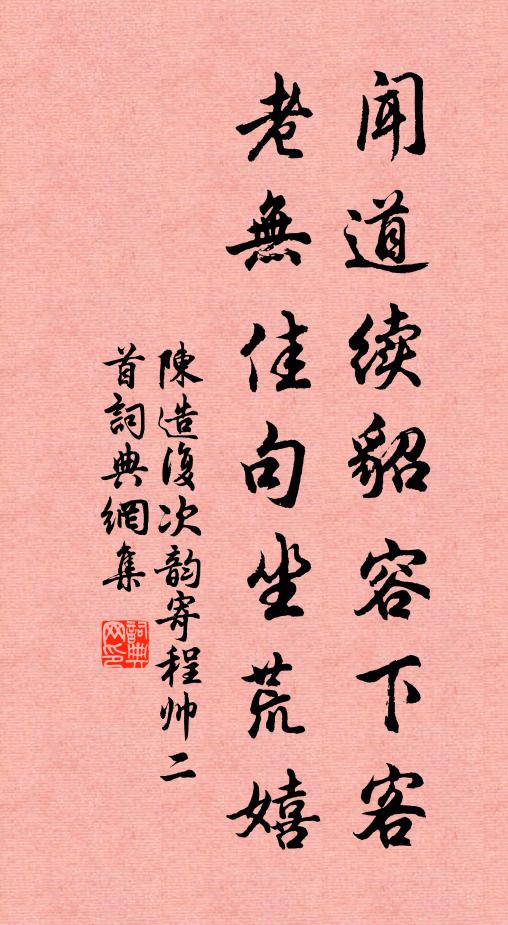 闻道续貂容下客
老無佳句坐荒嬉
陳造復次韵寄程帅二
首詞典網集
詞典网印